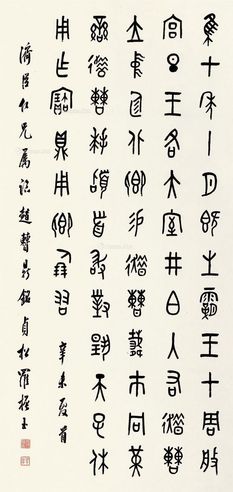 隹七年十月既生霸王才周般
宮旦王各大室井白入右趞曹
立中廷北鄉易趞曹𩛥巿冋黃
䜌趞曹拜𩒨首敢對揚天子休
用乍寶鼎用鄉倗友 辛未夏首
濟臣仁兄屬臨趞曹鼎銘貞松羅振玉